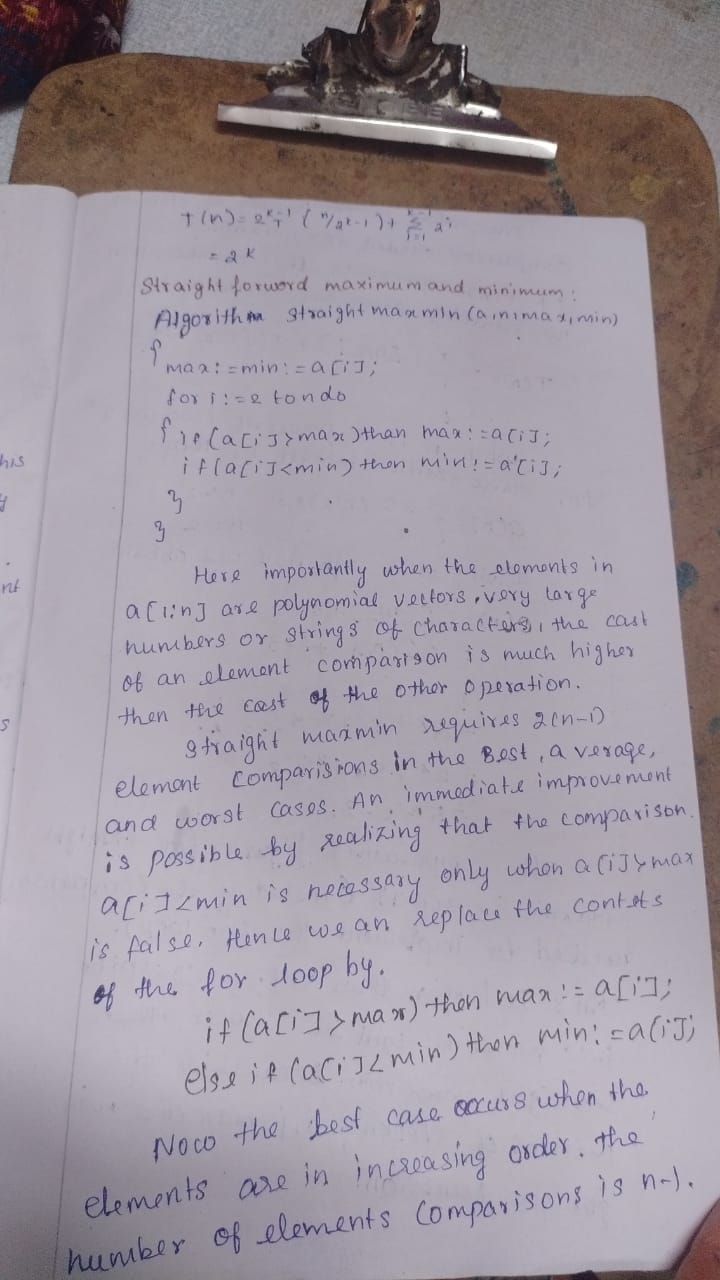 T(n) = 2^k-1 T ( n/2^k-1 ) + k-1 Σ i=1 2^i
= 2^k
Straight forword maximum and minimum :
Algorithm straight max min (a,n,max,min)
{
max:=min:=a[i];
for i:=2 to n do
{ if (a[i]>max) than max:=a[i];
if (a[i]<min) then min:=a[i];
}
}
Here importantly when the elements in
a[1:n] are polynomial vectors, very large
numbers or strings of characters, the cast
of an element comparison is much higher
then the cost of the other operation.
straight maxmin requires 2(n-1)
element comparisions in the Best, average,
and worst cases. An immediate improvement
is possible by realizing that the comparison.
a[i]<min is necessary only when a[i]>max
is false. Hence we an replace the contets
of the for loop by.
if (a[i]>max) then max:=a[i];
else if (a[i]<min) then min:=a[i];
Now the best case occurs when the
elements are in increasing order. the
number of elements comparisons is n-1.
his
y
nt
s